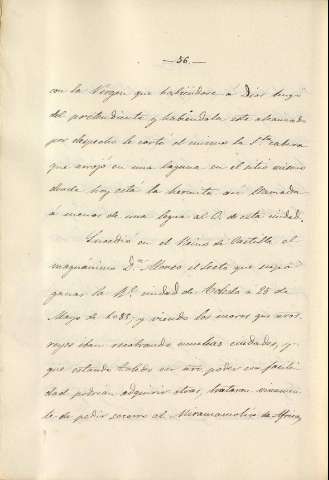 — 56. —
con la Virgen que habiendose á Dios huyó
del pretendiente y habiendola este alcanzado
por despecho le cortó el mismo la Sta. cabeza
que arrojó en una laguna en el sitio mismo
donde hoy está la hermita así llamada
á menos de una legua al O. de esta ciudad.
Sucedió en el Reino de Castilla el
magnánimo Dn. Alonso el Sesto que mejoró
ganar la Rl. ciudad de Toledo á 25 de
Mayo de 1085, y viendo los moros que
reyes iban recobrando muchas ciudades, y
que estando Toledo en poder con facili-
dad podrian adquirir otras, trataron
te de pedir socorro al Miramamolin de Africa,